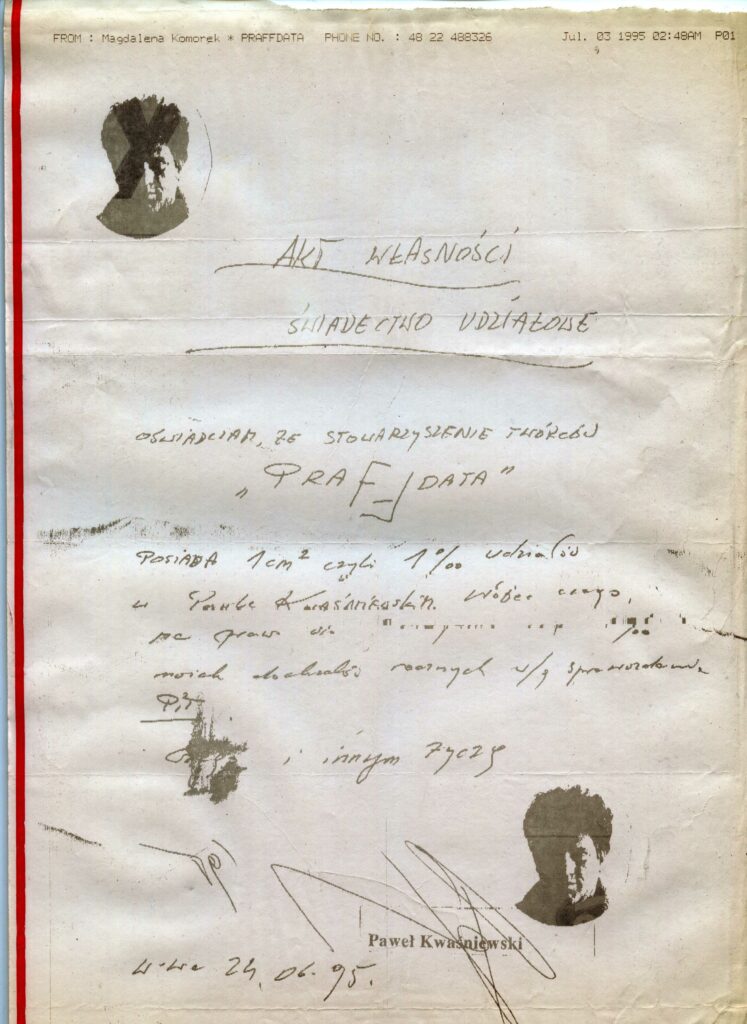 FROM : Magdalena Komorek * PRAFFDATA PHONE NO. : 48 22 488326 Jul. 03 1995 02:48AM P01
AKT WŁASNOŚCI
ŚWIADECTWO UDZIAŁOWE
OŚWIADCZAM, ŻE STOWARZYSZENIE TWÓRCÓW
„PRAFFDATA"
POSIADA 1cm² czyli 1‰ udziałów
w Pawle Kwaśniewskim. Wobec czego,
ma prawo do ‰
moich dochodów rocznych w/g sprawozdania
PiT.
i innym życzę
Paweł Kwaśniewski
w-wa 24.06.95.